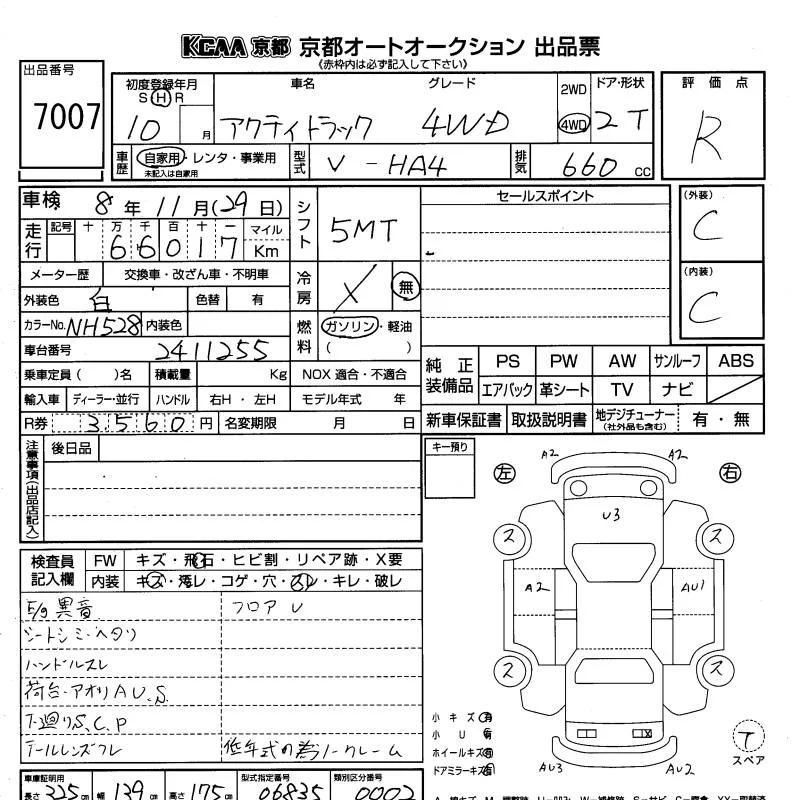 KCAA 京都 京都オートオークション 出品票
《赤枠内は必ず記入して下さい》
出品番号
7007
初度登録年月
S H R
10 月
車名
アクティトラック
グレード
4WD
2WD
4WD
ドア・形状
2 T
評価点
R
車歴
自家用・レンタ・事業用
未記入は自家用
型式
V-HA4
排気
660 CC
車検 8年 11月(29日)
走行
記号 十 万 千 百 十 一 マイル
66017 Km
シフト
5MT
セールスポイント
(外装)
C
(内装)
C
メーター歴 交換車・改ざん車・不明車
冷房
X 無
外装色 白 色替 有
カラーNo. NH528 内装色
燃料
ガソリン・軽油
( )
車台番号 2411255
乗車定員( )名 積載量 Kg NOX 適合・不適合
輸入車 ディーラー・並行 ハンドル 右H・左H モデル年式 年
R券 3560円 名変期限 月 日
純正装備品
PS PW AW サンルーフ ABS
エアバック 革シート TV ナビ
新車保証書 取扱説明書 地デジチューナー(社外品も含む) 有・無
注意事項(出品店記入)
後日品
キー預り
左
右
A2
A2
U3
ス
ス
A2
AU1
ス
ス
X
AU3
AU2
検査員記入欄
FW キズ・飛石・ヒビ割・リペア跡・X要
内装 キズ・汚レ・コゲ・穴・スレ・キレ・破レ
E/g 異音
フロア U
シートシミ・ヘタリ
ハンドルスレ
荷台・アオリ A U.S.
下廻りS.C.P
テールレンズワレ
低年式の為ノークレーム
小キズ 有
小U 有
ホイールキズ 有
ドアミラーキズ 有
T
スペア
車庫証明用
長さ 325 cm 幅 139 cm 高さ 175 cm
型式指定番号
06835
類別区分番号
0002